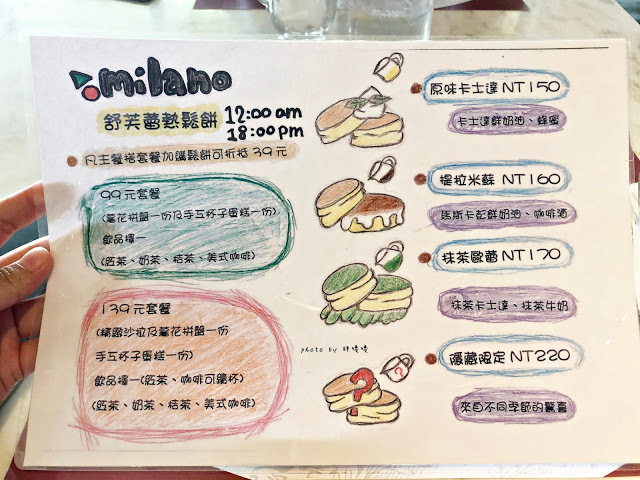 milano
舒芙蕾熱鬆餅
12:00am
18:00pm
凡主餐搭套餐加購鬆餅可折抵39元
99元套餐
(薯花拼盤一份及手工杯子蛋糕一份)
飲品擇一
(紅茶、奶茶、桔茶、美式咖啡)
139元套餐
(精緻沙拉及薯花拼盤一份
手工杯子蛋糕一份)
飲品擇一(紅茶、咖啡可續杯)
(紅茶、奶茶、桔茶、美式咖啡)
原味卡士達 NT150
卡士達鮮奶油、蜂蜜
提拉米蘇 NT160
馬斯卡彭鮮奶油、咖啡酒
抹茶歐蕾 NT170
抹茶卡士達、抹茶牛奶
隱藏限定 NT220
來自不同季節的驚喜
photo by